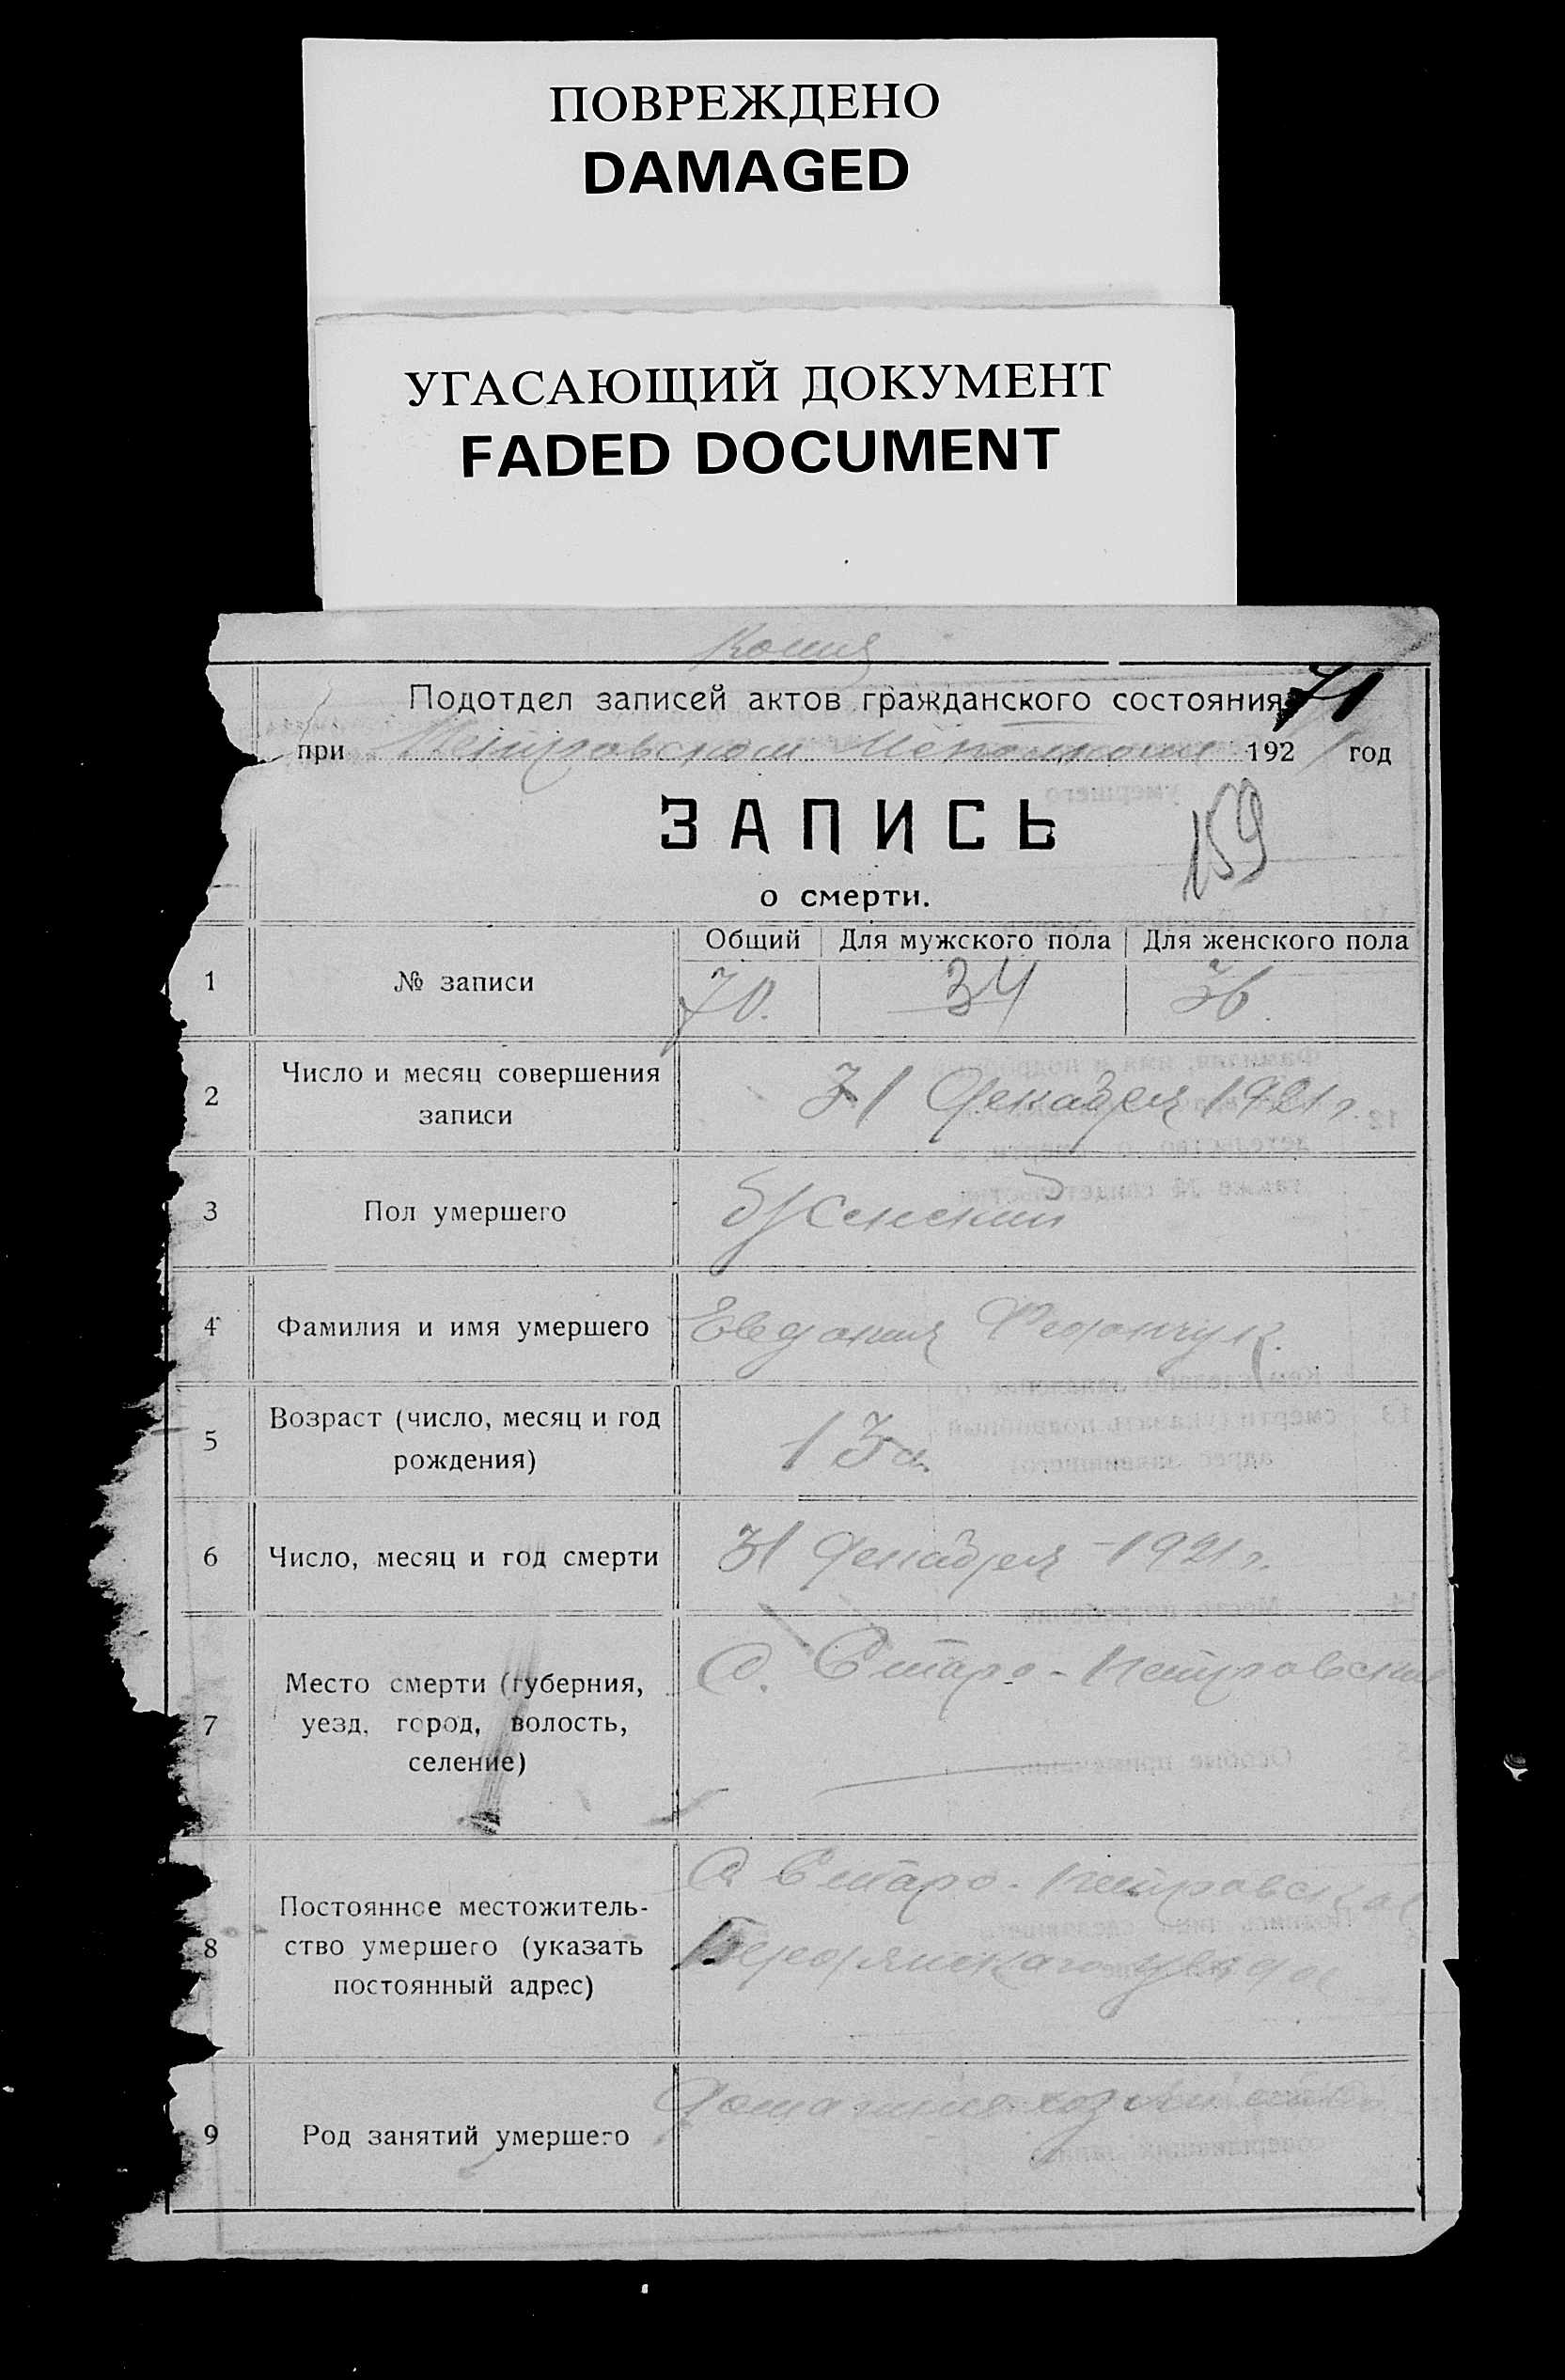 ПОВРЕЖДЕНО
DAMAGED
УГАСАЮЩИЙ ДОКУМЕНТ
FADED DOCUMENT
Копия
Подотдел записей актов гражданского состояния 71
при Петровском 1921 год
ЗАПИСЬ
159
о смерти.
Общий Для мужского пола Для женского пола
1 № записи 70. 34 36.
2 Число и месяц совершения
записи
31 Декабря 1921 г.
3 Пол умершего Женский
4 Фамилия и имя умершего Евдокия
5 Возраст (число, месяц и год
рождения)
6 Число, месяц и год смерти 31 Декабря – 1921 г.
7 Место смерти (губерния,
уезд, город, волость,
селение)
С. Старо-Петровский
8 Постоянное местожитель-
ство умершего (указать
постоянный адрес)
С Старо-Петровское
Бердянского уезда
9 Род занятий умершего